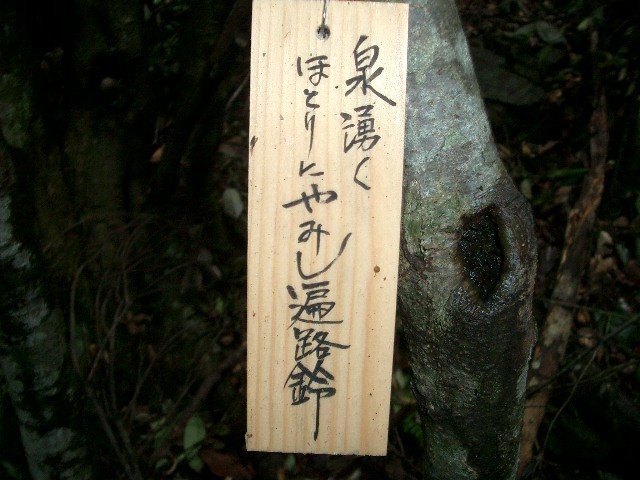 泉湧く
ほとりにやみし遍路鈴